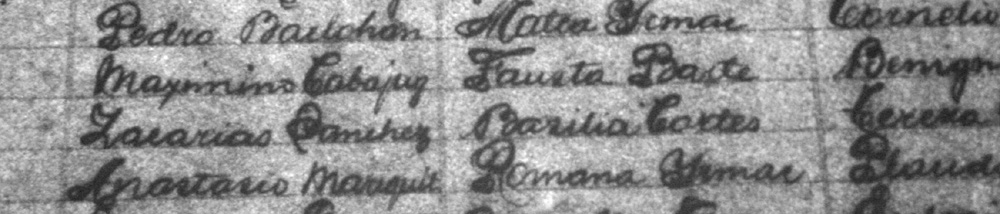 Pedro Batohan Matea Ysmar Corneliu
Maximino Cabajug Fausta Baste Benign
Zacarias Sanchez Basilia Cortes Cereza
Anastacio Mangubat Romana Ysmar Plaud